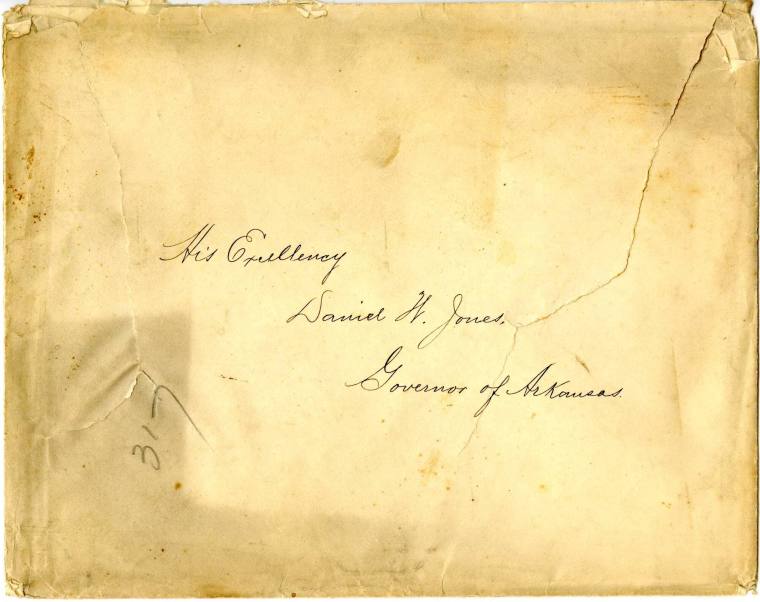 His Excellency
Daniel W. Jones.
Governor of Arkansas.
317